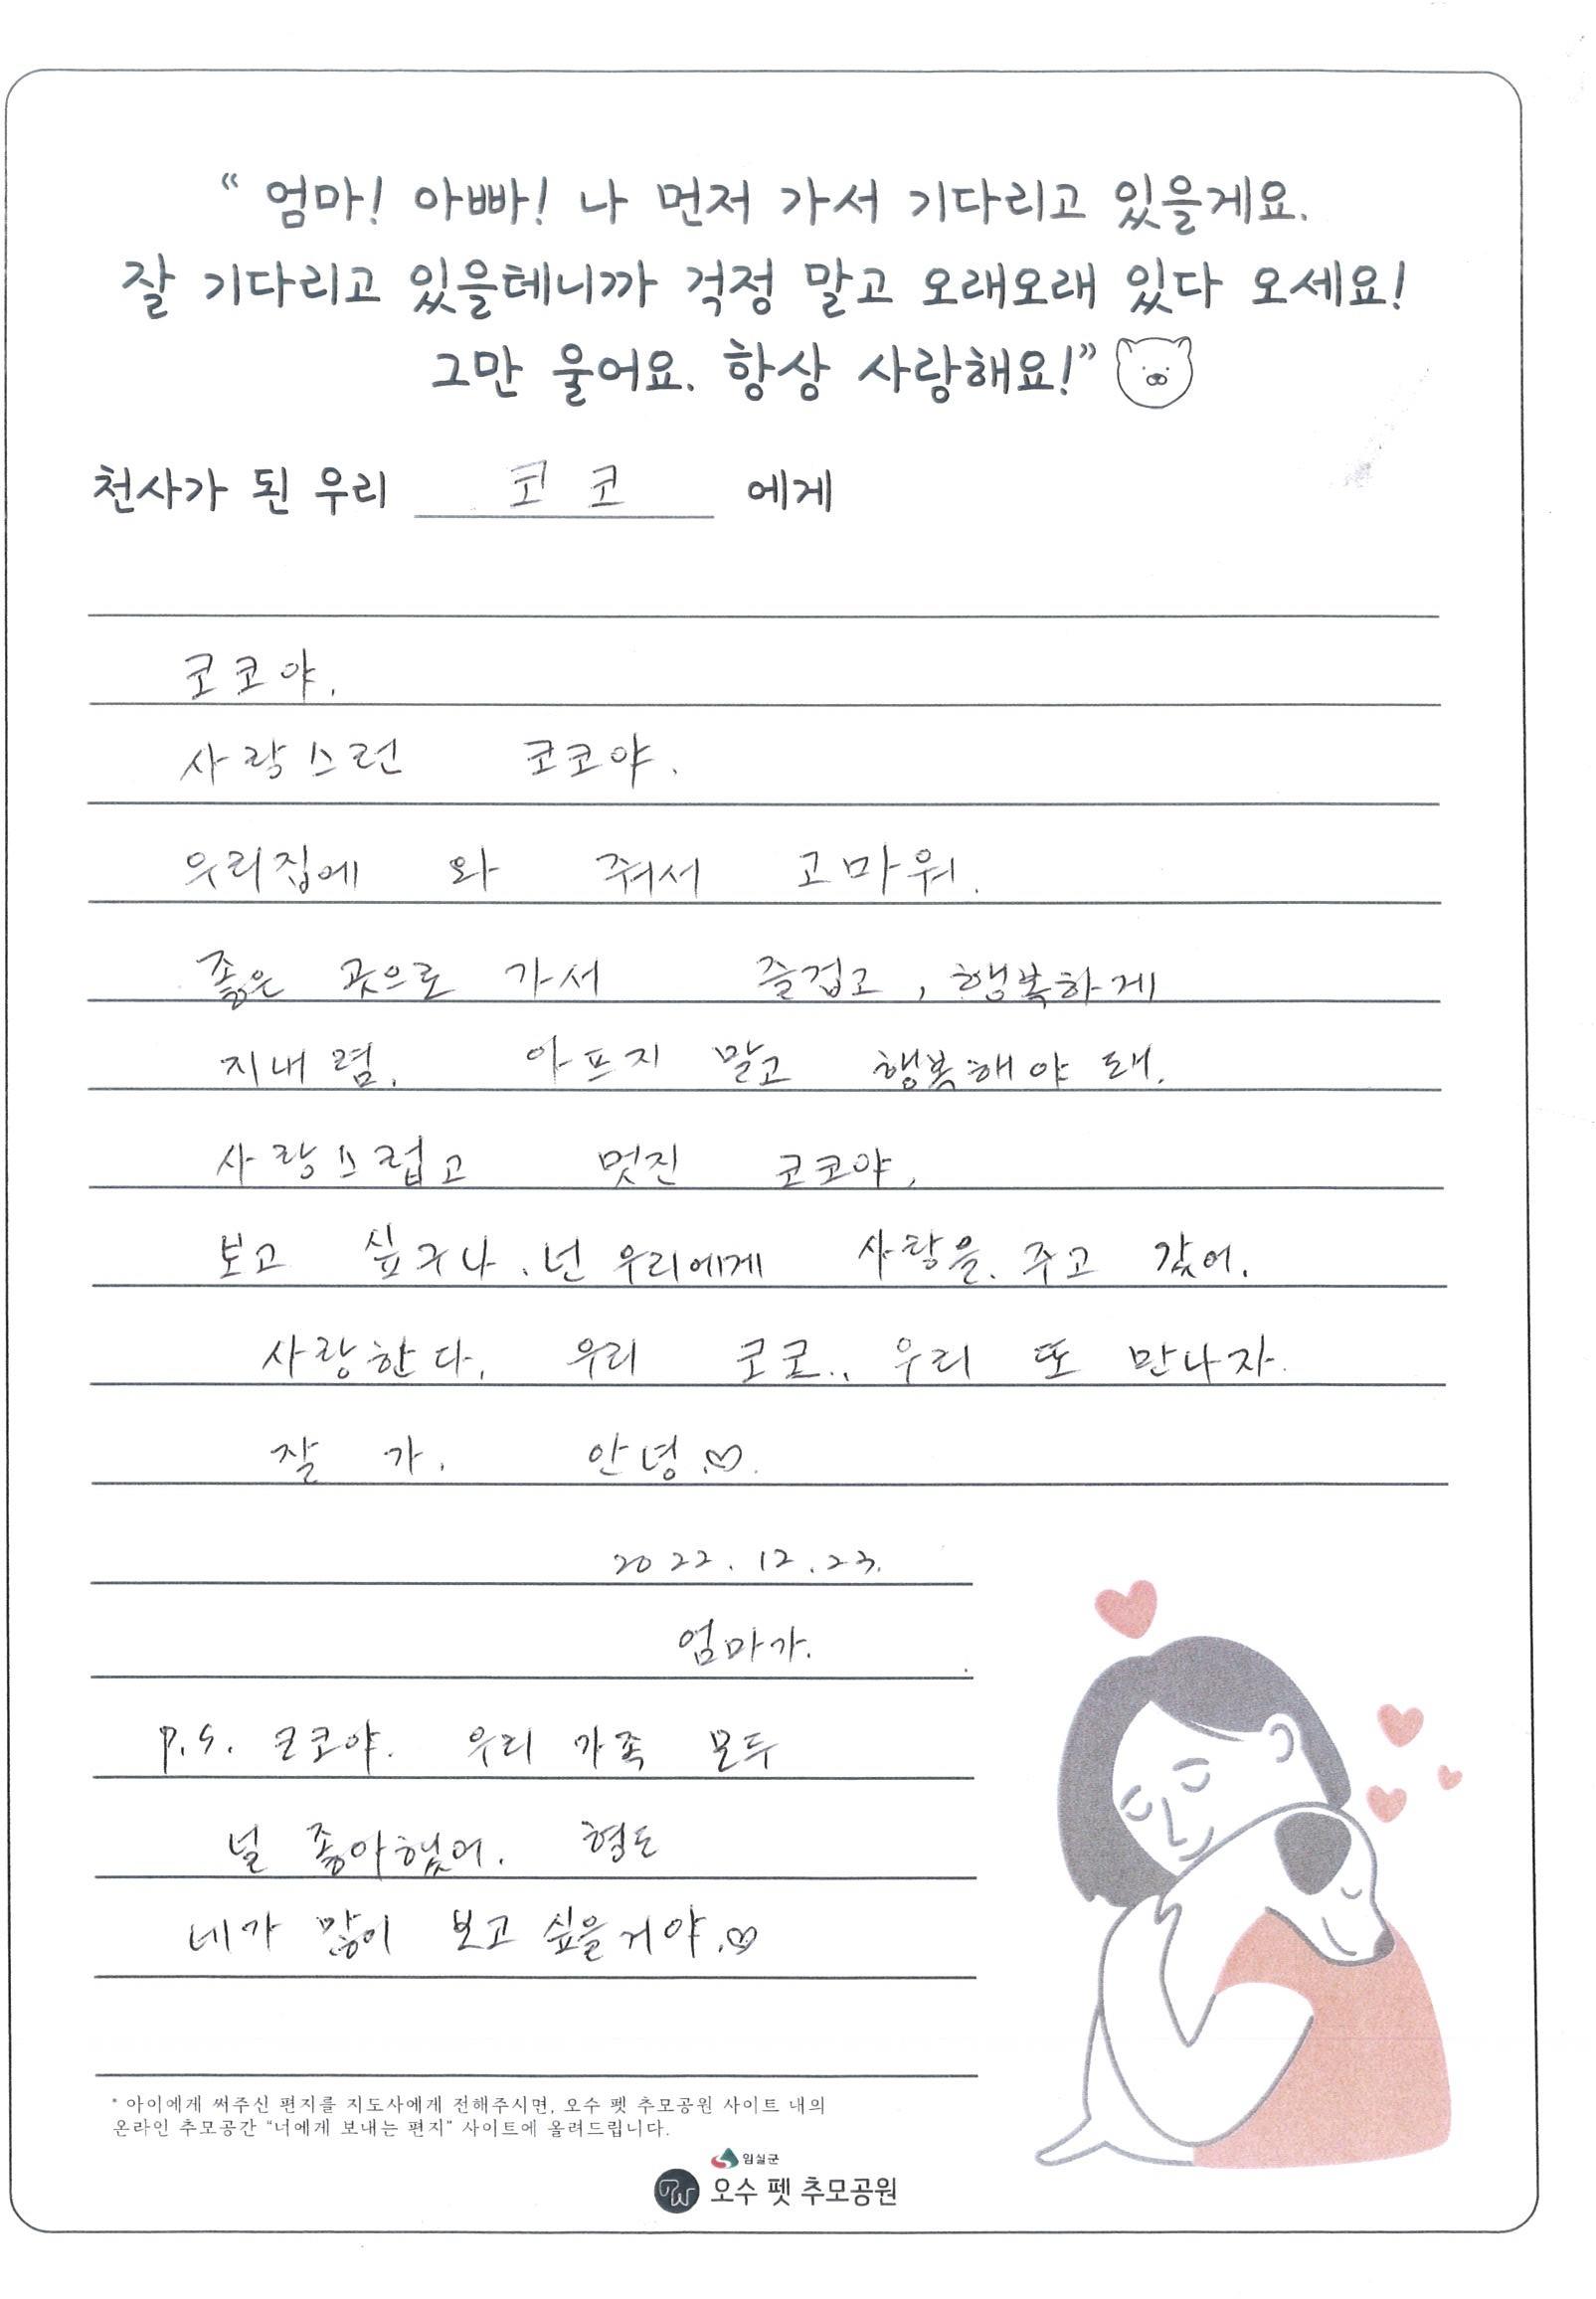 “ 엄마! 아빠! 나 먼저 가서 기다리고 있을게요.
잘 기다리고 있을테니까 걱정 말고 오래오래 있다 오세요!
그만 울어요. 항상 사랑해요!”
천사가 된 우리 코코 에게
코코야.
사랑스런 코코야.
우리집에 와 줘서 고마워.
좋은 곳으로 가서 즐겁고, 행복하게
지내렴. 아프지 말고 행복해야 돼.
사랑스럽고 멋진 코코야,
보고 싶구나. 넌 우리에게 사랑을 주고 갔어.
사랑한다, 우리 코코.. 우리 또 만나자.
잘 가. 안녕♡.
2022.12.23.
엄마가.
P.S. 코코야. 우리 가족 모두
널 좋아했어. 형도
네가 많이 보고 싶을거야.♡
* 아이에게 써주신 편지를 지도사에게 전해주시면, 오수 펫 추모공원 사이트 내의
온라인 추모공간 “너에게 보내는 편지” 사이트에 올려드립니다.
임실군
오수 펫 추모공원